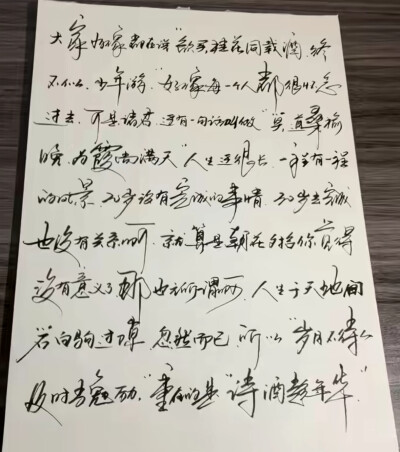 大家好像都在说"欲买桂花同载酒,终
不似,少年游"好像每一个人都很怀念
过去,可是诸君,还有一句话叫做"莫道桑榆
晚,为霞尚满天"人生还很长,一程有一程
的风景,20岁没有完成的事情,30岁去完成
也没有关系的啊,就算是朝花夕拾你觉得
没有意义了那也无所谓啊,人生于天地间
若白驹过隙,忽然而已,所以"岁月不待人
及时当勉励,"重在的是"诗酒趁年华"